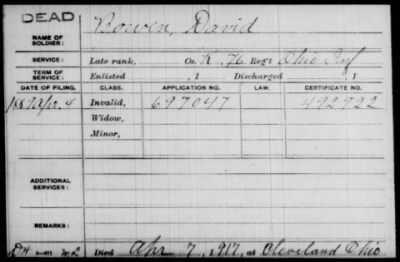 DEAD
NAME OF SOLDIER: Bowen, David
SERVICE: Late rank, Co. K, 76 Reg't Ohio Inf
TERM OF SERVICE: Enlisted , 1 Discharged , 1
DATE OF FILING. CLASS. APPLICATION NO. LAW. CERTIFICATE NO.
1887 Apr. 4 Invalid, 697047 492922
Widow,
Minor,
ADDITIONAL SERVICES:
REMARKS:
Died Apr 7, 1917, at Cleveland Ohio